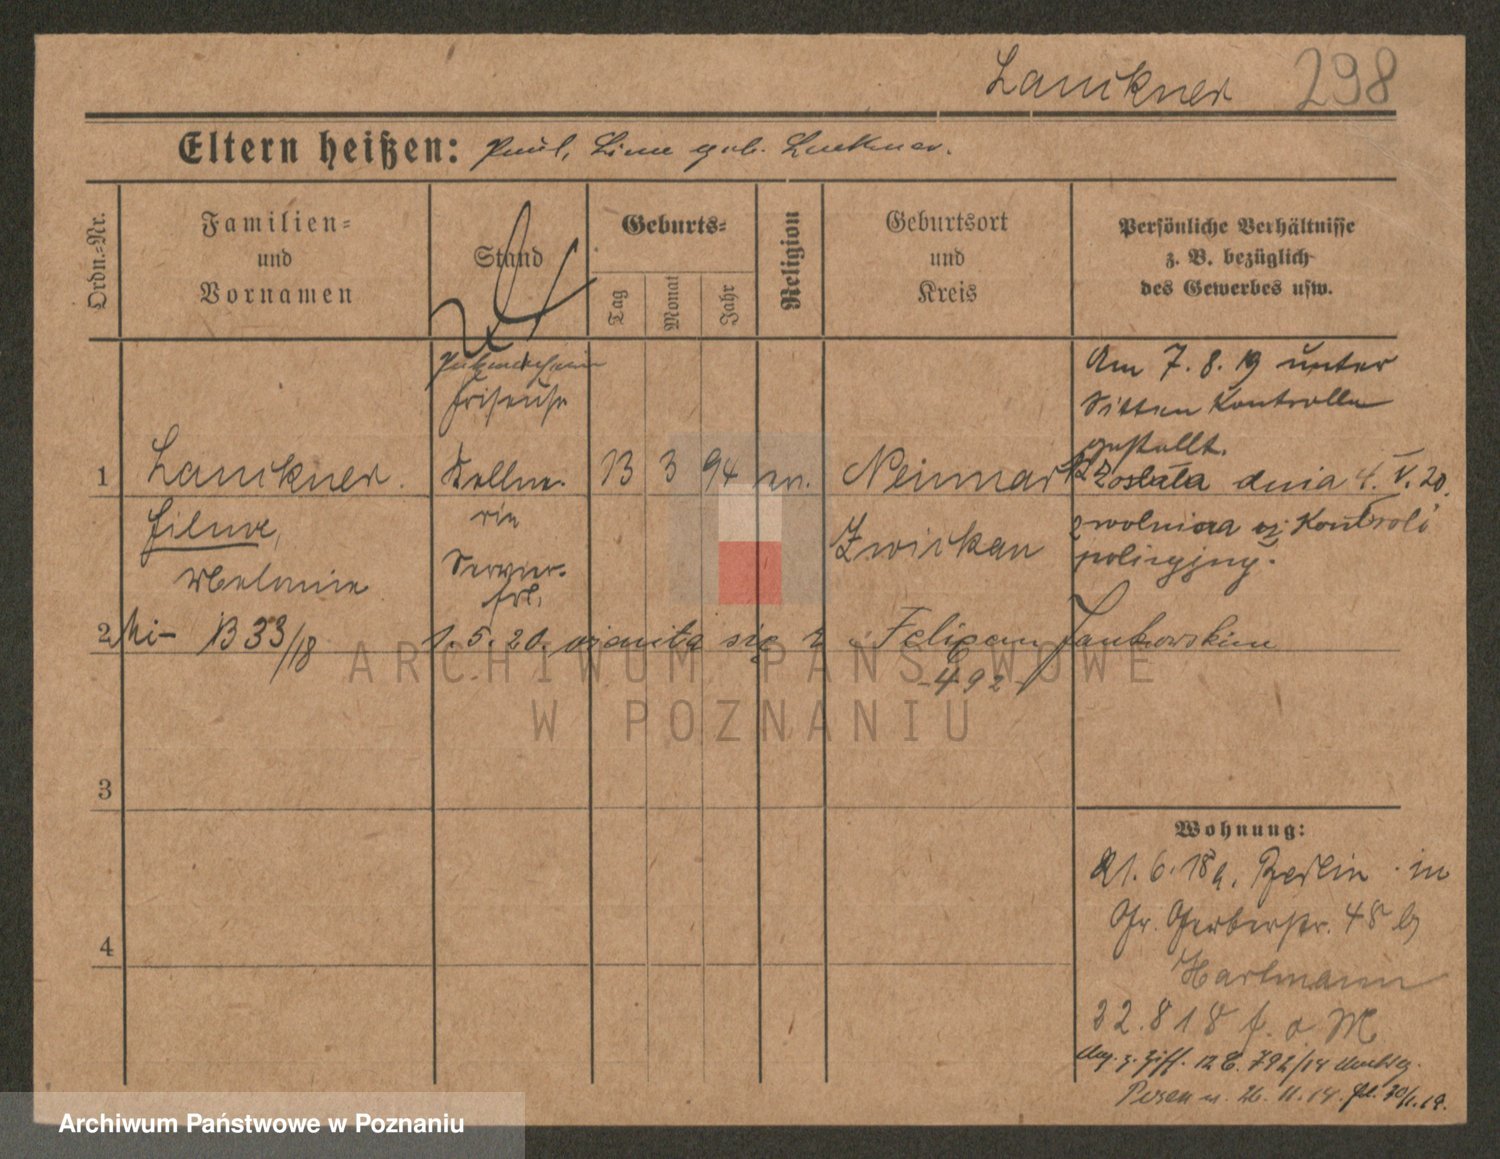 Lauckner 298
Eltern heißen: Paul, Lina geb. Luckner.
Ordn.=Nr.
Familien=
und
Vornamen
Stand
Geburts=
Tag
Monat
Jahr
Religion
Geburtsort
und
Kreis
Persönliche Verhältnisse
z. B. bezüglich
des Gewerbes usw.
Friseuse
1 Lauckner. Kellne- 13 3 94 ev.
rin
Melanie
Servier-
frl.
Zwickau
Am 7.8.19 unter
Sitten Kontrolle
gestellt.
Została dnia 4. V. 20.
zwolniona Kontroli
policyjnej.
2 B 33/18 1.5.20. się z Felixem Jankowskim
-492-
3
4
Wohnung:
21.6.18 a. Berlin in
Gr. Gerberstr. 48 b
Hartmann
22.8 18 f. a M
Posen 26.11.14.
ARCHIWUM PAŃSTWOWE
W POZNANIU
Archiwum Państwowe w Poznaniu